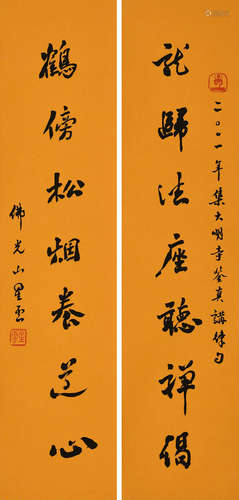 二〇〇一年集大明寺鉴真講律句
龍歸法座聽禪偈
鶴傍松烟養道心
佛光山星雲